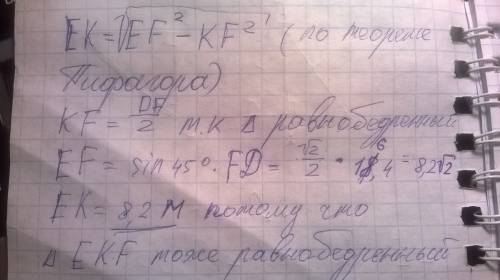 EK=√EF² - KF² (по теореме
Пифагора)
KF = DF/2 т.к Δ равнобедренный
EF = sin 45° · FD = √2/2 · 16,4 = 8,2√2
EK = 8,2 м потому что
Δ EKF тоже равнобедренный